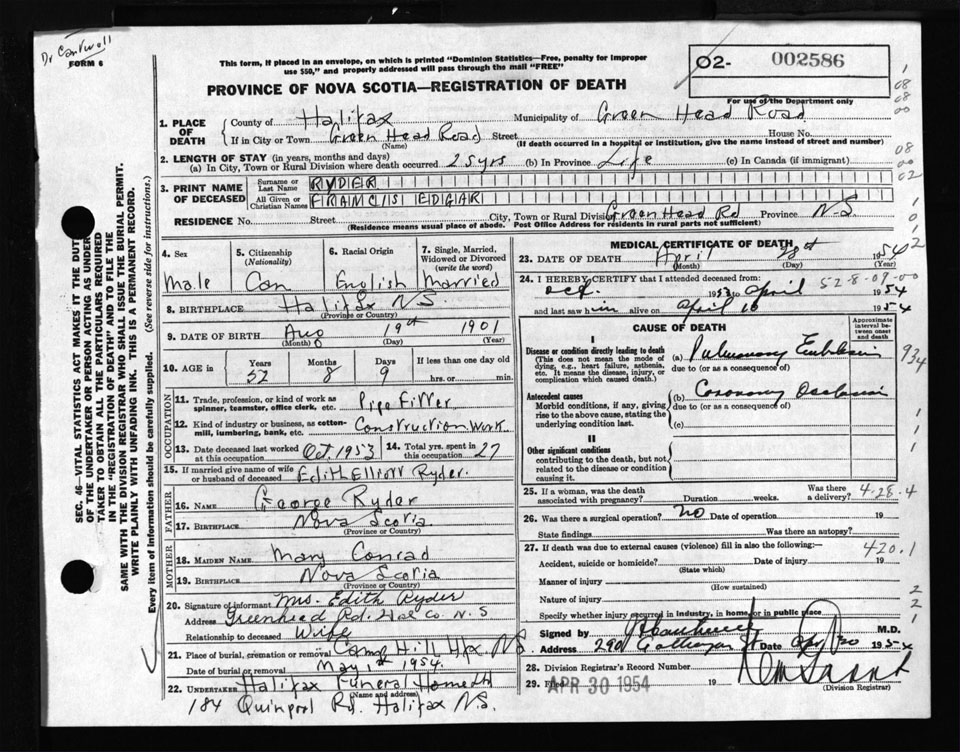 Dr Cantwell
FORM 6
This form, if placed in an envelope, on which is printed "Dominion Statistics—Free, penalty for improper
use $50," and properly addressed will pass through the mail "FREE"
02- 002586
For use of the Department only
PROVINCE OF NOVA SCOTIA—REGISTRATION OF DEATH
1. PLACE OF DEATH
County of Halifax Municipality of Green Head Road
If in City or Town Green Head Road Street House No.
(Name) (If death occurred in a hospital or institution, give the name instead of street and number)
2. LENGTH OF STAY (in years, months and days)
(a) In City, Town or Rural Division where death occurred 25 yrs (b) In Province Life (c) In Canada (if immigrant)
3. PRINT NAME OF DECEASED
Surname or Last Name RYDER
All Given or Christian Names FRANCIS EDGAR
RESIDENCE No. Street City, Town or Rural Division Green Head Rd Province N.S.
(Residence means usual place of abode. Post Office Address for residents in rural parts not sufficient)
SEC. 46—VITAL STATISTICS ACT MAKES IT THE DUTY
OF THE UNDERTAKER OR PERSON ACTING AS UNDER-
TAKER TO OBTAIN ALL THE PARTICULARS REQUIRED
IN THE "REGISTRATION OF DEATH" AND TO FILE THE
SAME WITH THE DIVISION REGISTRAR WHO SHALL ISSUE THE BURIAL PERMIT.
WRITE PLAINLY WITH UNFADING INK. THIS IS A PERMANENT RECORD.
Every item of information should be carefully supplied. (See reverse side for instructions.)
4. Sex Male
5. Citizenship (Nationality) Can
6. Racial Origin English
7. Single, Married, Widowed or Divorced (write the word) Married
8. BIRTHPLACE Halifax N.S.
(Province or Country)
9. DATE OF BIRTH Aug 19th 1901
(Month) (Day) (Year)
10. AGE in Years 52 Months 8 Days 9 If less than one day old
hrs. or min.
OCCUPATION
11. Trade, profession, or kind of work as spinner, teamster, office clerk, etc. Pipe Fitter
12. Kind of industry or business, as cotton-mill, lumbering, bank, etc. Construction Work
13. Date deceased last worked at this occupation Oct. 1953 14. Total yrs. spent in this occupation 27
15. If married give name of wife or husband of deceased Edith Elliott Ryder.
FATHER
16. NAME George Ryder
17. BIRTHPLACE Nova Scotia
(Province or Country)
MOTHER
18. MAIDEN NAME Mary Conrad
19. BIRTHPLACE Nova Scotia
(Province or Country)
20. Signature of informant Mrs. Edith Ryder
Address Greenhead Rd. Hfx Co. N.S
Relationship to deceased Wife
21. Place of burial, cremation or removal Camp Hill Hfx N.S.
Date of burial or removal May 1st 1954.
22. UNDERTAKER Halifax Funeral Home
(Name and address)
184 Quinpool Rd. Halifax N.S.
MEDICAL CERTIFICATE OF DEATH
23. DATE OF DEATH April 28th 1954
(Month) (Day) (Year)
24. I HEREBY CERTIFY that I attended deceased from: 52-8-09-00
Oct. 1953 to April 1954
and last saw him alive on April 1954
CAUSE OF DEATH
Approximate interval between onset and death
I
Disease or condition directly leading to death
(This does not mean the mode of dying, e.g., heart failure, asthenia, etc. It means the disease, injury, or complication which caused death.)
(a) Pulmonary Embolism 934
due to (or as a consequence of)
Antecedent causes
Morbid conditions, if any, giving rise to the above cause, stating the underlying condition last.
(b) Coronary Occlusion
due to (or as a consequence of)
(c)
II
Other significant conditions
contributing to the death, but not related to the disease or condition causing it.
25. If a woman, was the death associated with pregnancy? Duration weeks. Was there a delivery? 4-28-4
26. Was there a surgical operation? No Date of operation 19
State findings Was there an autopsy?
27. If death was due to external causes (violence) fill in also the following:— 420.1
Accident, suicide or homicide? Date of injury 19
(State which)
Manner of injury
(How sustained)
Nature of injury
Specify whether injury occurred in industry, in home, or in public place
Signed by M.D.
Address 290 Date 1954
28. Division Registrar's Record Number
29. Filed APR 30 1954 19
(Division Registrar)